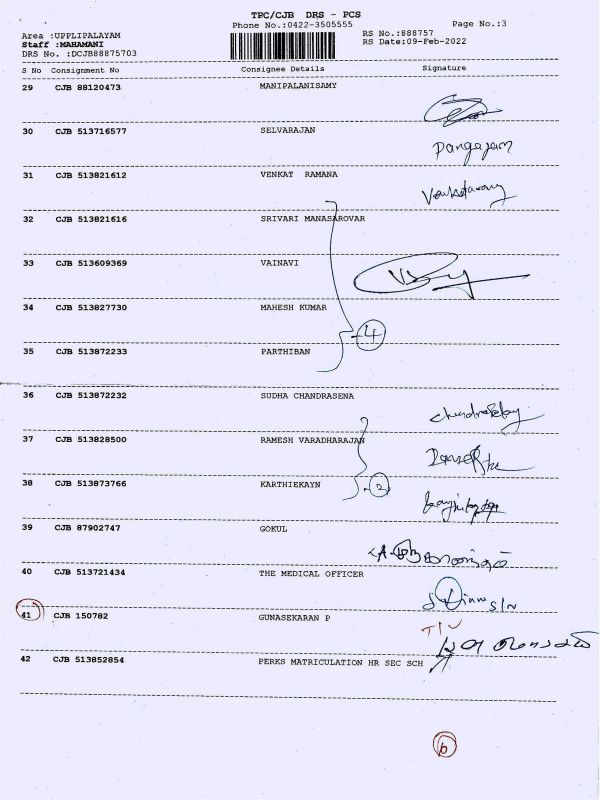 TPC/CJB DRS - PCS
Phone No.:0422-3505555 Page No.:3
Area :UPPLIPALAYAM RS No.:888757
Staff :MAHAMANI RS Date:09-Feb-2022
DRS No. :DCJB88875703
S No Consignment No Consignee Details Signature
29 CJB 88120473 MANIPALANISAMY
30 CJB 513716577 SELVARAJAN
Pangajam
31 CJB 513821612 VENKAT RAMANA
32 CJB 513821616 SRIVARI MANASAROVAR
33 CJB 513609369 VAINAVI
34 CJB 513827730 MAHESH KUMAR
4
35 CJB 513872233 PARTHIBAN
36 CJB 513872232 SUDHA CHANDRASENA
37 CJB 513828500 RAMESH VARADHARAJAN
38 CJB 513873766 KARTHIEKAYN
2
39 CJB 87902747 GOKUL
40 CJB 513721434 THE MEDICAL OFFICER
41 CJB 150782 GUNASEKARAN P
42 CJB 513852854 PERKS MATRICULATION HR SEC SCH
b